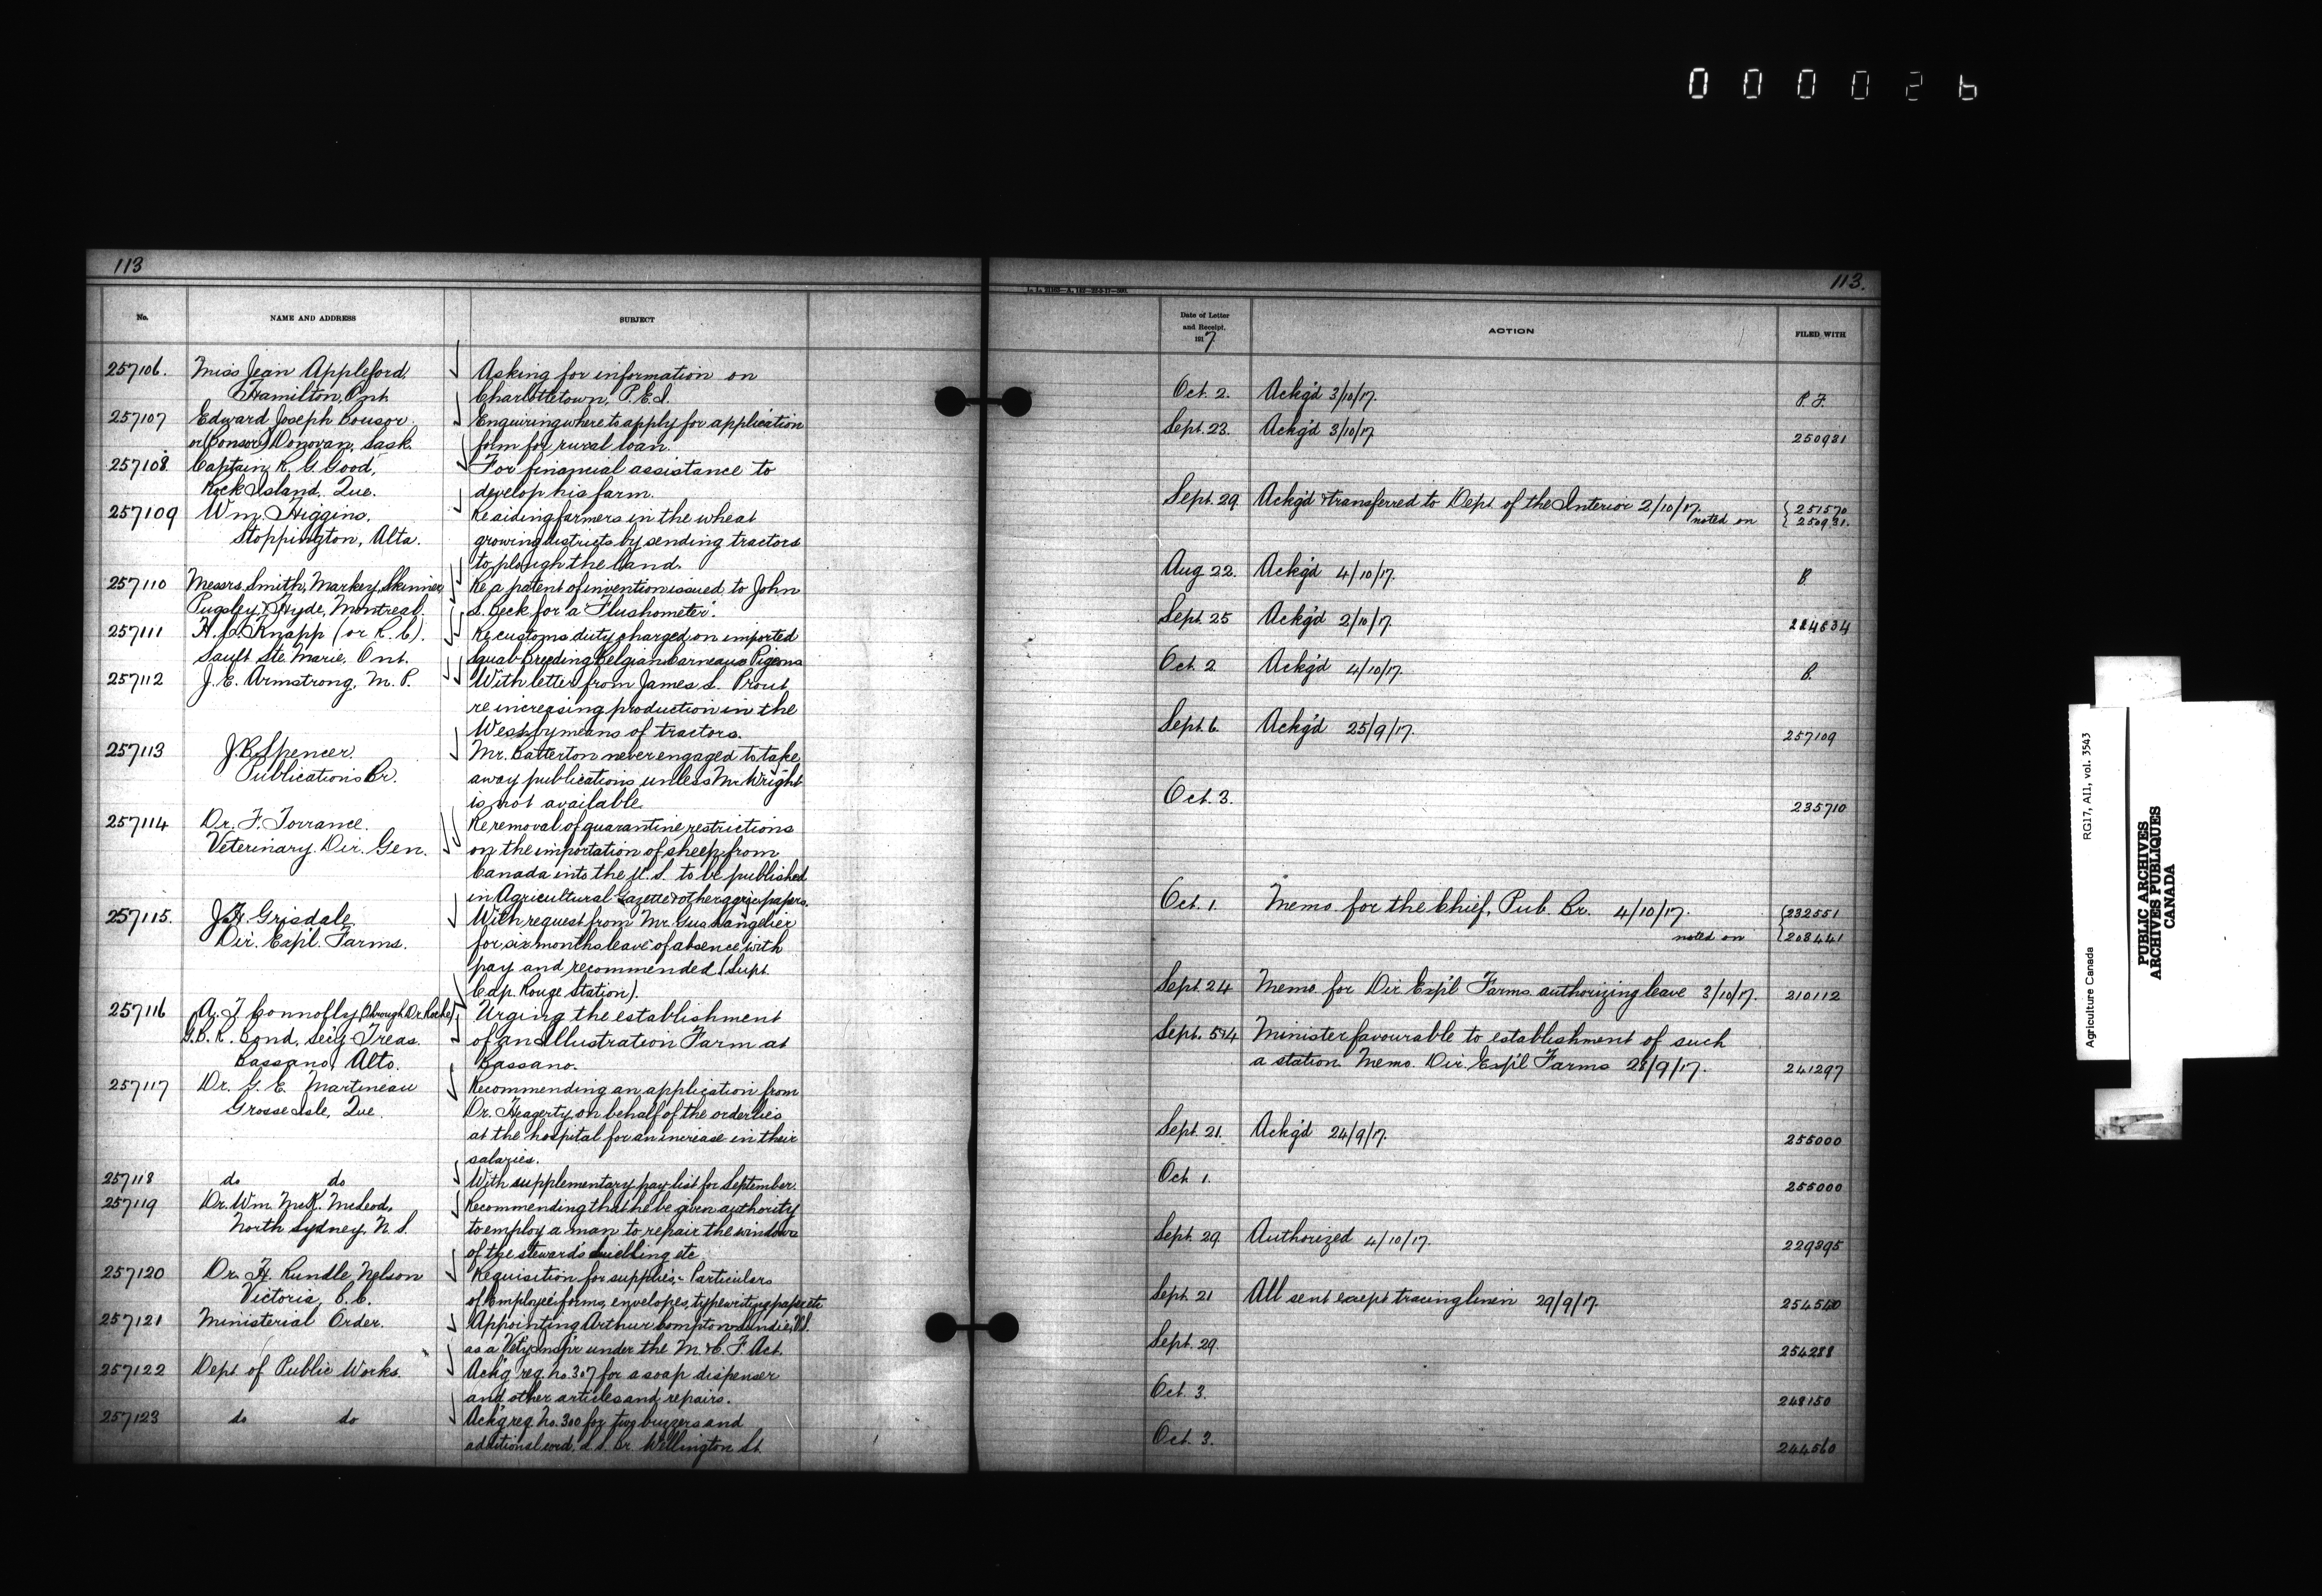 000026
113
No.
NAME AND ADDRESS
SUBJECT
257106. Miss Jean Appleford, Asking for information on
Hamilton, Ont. Charlottetown, P.E.I.
257107 Edward Joseph Bousor Enquiring where to apply for application
or (Bonsor) Donovan, Sask. form for rural loan.
257108. Captain R. G. Good, For financial assistance to
Rock Island, Que. develop his farm.
257109 Wm. Higgins, Re aiding farmers in the wheat
Stoppington, Alta. growing districts by sending tractors
to plough the land.
257110 Messrs. Smith, Markey, Skinner, Re a patent of invention issued to John
Pugsley & Hyde, Montreal. S. Beck for a "Flushometer".
257111 Knapp (or R. C). Re customs duty charged on imported
Sault Ste. Marie, Ont. Squab-Breeding Belgian Carneaux Pigeons
257112 J. E. Armstrong, M. P. With letter from James S. Prout
re increasing production in the
West by means of tractors.
257113 J.B. Spencer, Mr. Batterton never engaged to take
Publications Br. away publications unless Mr. Wright
is not available.
257114 Dr. F. Torrance. Re removal of quarantine restrictions
Veterinary Dir. Gen. on the importation of sheep from
Canada into the U. S. to be published
in Agricultural Gazette & other papers.
257115. J.H. Grisdale With request from Mr. Gus. Langelier
Dir. Exp'l Farms. for six months leave of absence with
pay and recommended (Supt.
Cap Rouge Station).
257116 A. J. Connolly (through Dr. Roche) Urging the establishment
G.B.R. Bond, Sec'y Treas. of an Illustration Farm at
Bassano, Alta. Bassano.
257117 Dr. G. E. Martineau Recommending an application from
Grosse Isle, Que. Dr. Heagerty on behalf of the orderlies
at the hospital for an increase in their
salaries.
257118 do do With supplementary pay list for September.
257119 Dr. Wm. McK. McLeod, Recommending that he be given authority
North Sydney, N. S. to employ a man to repair the windows
of the steward's dwelling etc.
257120 Dr. H. Rundle Nelson Requisition for supplies:- Particulars
Victoria, B.C. of Employee forms, envelopes, typewriting paper etc
257121 Ministerial Order. Appointing Arthur Compton V.S.
as a Vet'y Insp'r under the M. & C. F. Act.
257122 Dept of Public Works. Ack'g req. No. 307 for a soap dispenser
and other articles and repairs.
257123 do do Ack'g req. No. 300 for two buzzers and
additional cord, L. S. Br. Wellington St.
113.
Date of Letter
and Receipt.
1917
ACTION
FILED WITH
Oct. 2. Ackg'd 3/10/17. P. F.
Sept. 23. Ackg'd 3/10/17 250931
Sept. 29 Ackg'd & transferred to Dept. of the Interior 2/10/17. 251570
noted on 250931.
Aug 22. Ackg'd 4/10/17. B.
Sept. 25 Ackg'd 2/10/17. 224634
Oct. 2. Ackg'd 4/10/17. B.
Sept. 6. Ackg'd 25/9/17. 257109
Oct. 3. 235710
Oct. 1. Memo. for the Chief, Pub. Br. 4/10/17. 232551
noted on 203441
Sept. 24 Memo. for Dir. Exp'l Farms authorizing leave 3/10/17. 210112
Sept. 5 & 4 Minister favourable to establishment of such
a station. Memo. Dir. Exp'l Farms 28/9/17. 241297
Sept. 21. Ackg'd 24/9/17. 255000
Oct. 1. 255000
Sept. 29 Authorized 4/10/17. 229395
Sept. 21 All sent except tracing linen 29/9/17. 254540
Sept. 29. 254288
Oct. 3. 248150
Oct. 3. 244560
Agriculture Canada RG17, A11, vol. 3543
PUBLIC ARCHIVES
ARCHIVES PUBLIQUES
CANADA